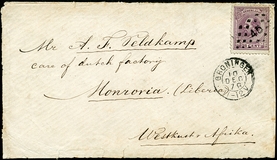 Mr. A. F. Veldkamp
care of dutch factory
Monrovia. (Liberia
Westkust Afrika.
45
GRONINGEN
10
DEC
76